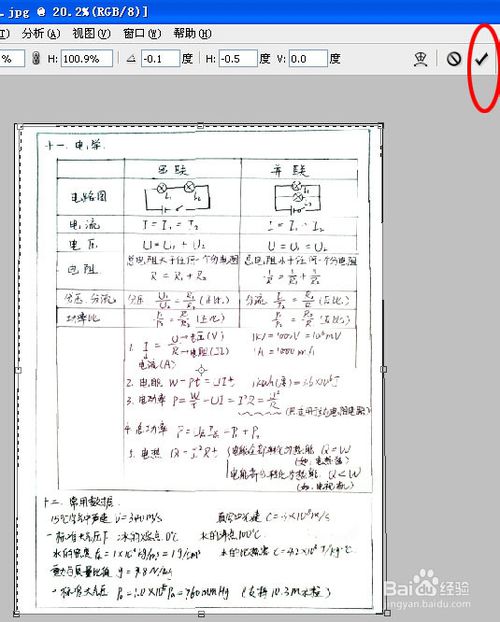 .jpg @ 20.2%(RGB/8)]
I) 分析(A) 视图(V) 窗口(W) 帮助(H)
% H: 100.9% -0.1 度 H: -0.5 度 V: 0.0 度
十一. 电学
串联 并联
电路图 L₁ L₂
电流 I = I₁ = I₂ I = I₁ + I₂
电压 U = U₁ + U₂ U = U₁ = U₂
电阻 总电阻大于任何一个分电阻 总电阻小于任何一个分电阻
R = R₁ + R₂ 1/R = 1/R₁ + 1/R₂
分压、分流 分压 U₁/U₂ = R₁/R₂ (正比) 分流 I₁/I₂ = R₂/R₁ (反比)
功率比 P₁/P₂ = R₁/R₂ (正比) P₁/P₂ = R₂/R₁ (反比)
1. I = U/R U→电压(V) R→电阻(Ω) 1KV = 1000V = 10⁶mV
电流(A) 1A = 1000mA
2. 电能 W = Pt = UIt 1kWh(度) = 3.6×10⁶J
3. 电功率 P = W/t = UI = I²R = U²/R
4. 总功率 P = P₁ + P₂
5. 电热 Q = I²Rt 电能全部转化为热能 Q = W
电能部分转化为热能 Q < W
十二. 常用数据
15℃空气中声速 V = 340m/s 真空中光速 C = 3×10⁸m/s
一标准大气压下: 冰的熔点 0℃ 水的沸点 100℃
水的密度 = 1×10³kg/m³ = 1g/cm³ 水的比热容 C = 4.2×10³J/kg·℃
重力与质量比值 g = 9.8N/kg
一标准大气压 P₀ = 1.0×10⁵Pa = 760mmHg (支持 10.3m水柱)
Baidu 经验
jingyan.baidu.com